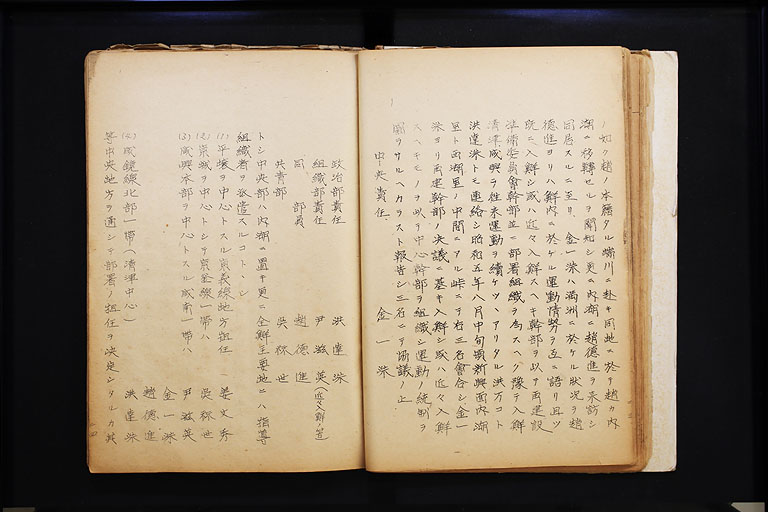 ノ如ク趙ノ本籍タル端川ニ赴キ同地ニ於テ趙カ内
湖ニ移轉セルヲ聞知シ更ニ内湖ニ趙德進ヲ来訪シ
同居スルニ至リ 金一洙ハ満洲ニ於ケル狀况ヲ趙
德進ヨリハ鮮内ニ於ケル運動情勢ヲ互ニ語リ且ツ
既ニ入鮮シ或ハ近々入鮮スヘキ幹部ヲ以テ再建設
準備委員會幹部並ニ部署組織ヲ為スヘク豫テ入鮮
清津咸興ヲ往来運動ヲ續ケツヽアリタル洪方コト
洪達洙トモ連絡シ昭和五年八月中旬頃新興面内湖
里ト西湖里ノ中間ニアル峠ニテ右三名會合シ金一
洙ヨリ再建幹部ノ決議ニ基キ入鮮シ或ハ近々入鮮
スヘキモノヲ以テ中心幹部ヲ組織シ運動ノ統制ヲ
圖ラサルヘカラスト報告シ三名ニテ協議ノ上
中央責任 金一洙
政治部責任 洪達洙
組織部責任 尹滋英(近々入鮮ノ筈)
同 部員 趙德進
共青部 吳祢世
トシ中央部ハ内湖ニ置キ更ニ全鮮主要地ニハ指導
組織者ヲ派遣スルコトヽシ
(1)平壌ヲ中心トスル京義線地方担任 姜文秀
(2)京城ヲ中心トシテ京釜線一帶ハ 吳祢世
(3)咸興本部ヲ中心トスル咸南一帶ハ 尹滋英
金一洙
趙德進
(4)咸鏡線北部一帶(清津中心) 洪達洙
等中央地方ヲ通シテ部署ノ担任ヲ決定シタルカ其